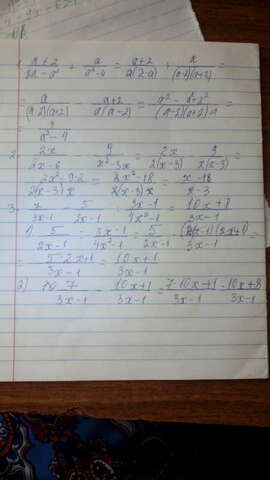 1. a+2/2a-a² + a/a²-4 = a+2/a(2-a) + a/(a-2)(a+2) =
= a/(a-2)(a+2) - a+2/a(a-2) = a²-a+2²/(a-2)(a+2)a =
a²-4
2. 2x/2x-6 - 9/x²-3x = 2x/2(x-3) - 9/(x-3) =
= 2x²-9·2/2(x-3)x = 2x²-18/2(x-3)x = x-18/x-3
3. 7/3x-1 - 5/2x-1 : 3x-1/4x²-1 = 10x+8/3x-1
1) 5/2x-1 : 3x-1/4x²-1 = 5/2x-1 · (2x-1)(2x+1)/3x-1 =
= 5·2x+1/3x-1 = 10x+1/3x-1
2) 7/3x-1 - 10x+1/3x-1 = 7-10x+1/3x-1 = 10x+8/3x-1